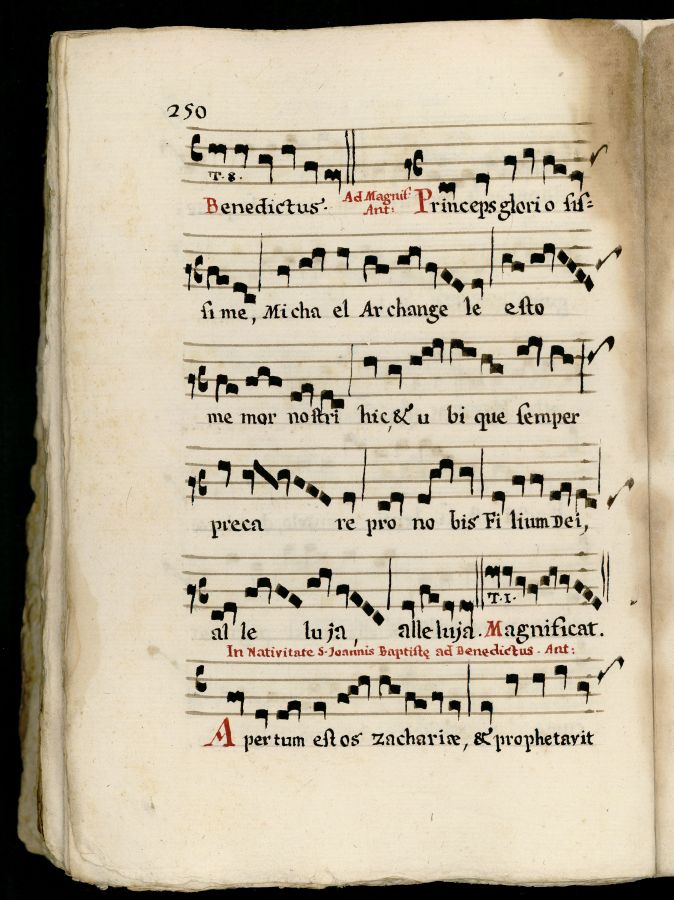 250
T. 8.
Benedictus. Ad Magnif: Ant: Princeps glori o sis=
si me, Micha el Ar change le esto
me mor nostri hic, & u bi que semper
preca re pro no bis Fi lium Dei,
T. 1.
al le lu ja, alleluja. Magnificat.
In Nativitate S. Joannis Baptistę ad Benedictus. Ant:
A pertum est os zachariæ, & prophetavit